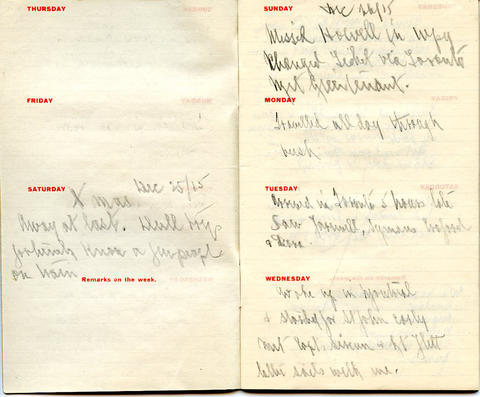 THURSDAY
FRIDAY
SATURDAY Dec 25/15
X mas.
Away at last. Dull
know a few people
on train
Remarks on the week.
SUNDAY Dec 26/15
Missed Howell in Wpg
Changed Ticket via Toronto
Met Greentenant.
MONDAY
Travelled all day through
bush
TUESDAY
Arrived in Toronto 5 hours late
Saw
WEDNESDAY
Woke up in Montreal
& started for St John early
Met Capt. & Lt Flett
latter sails with me.